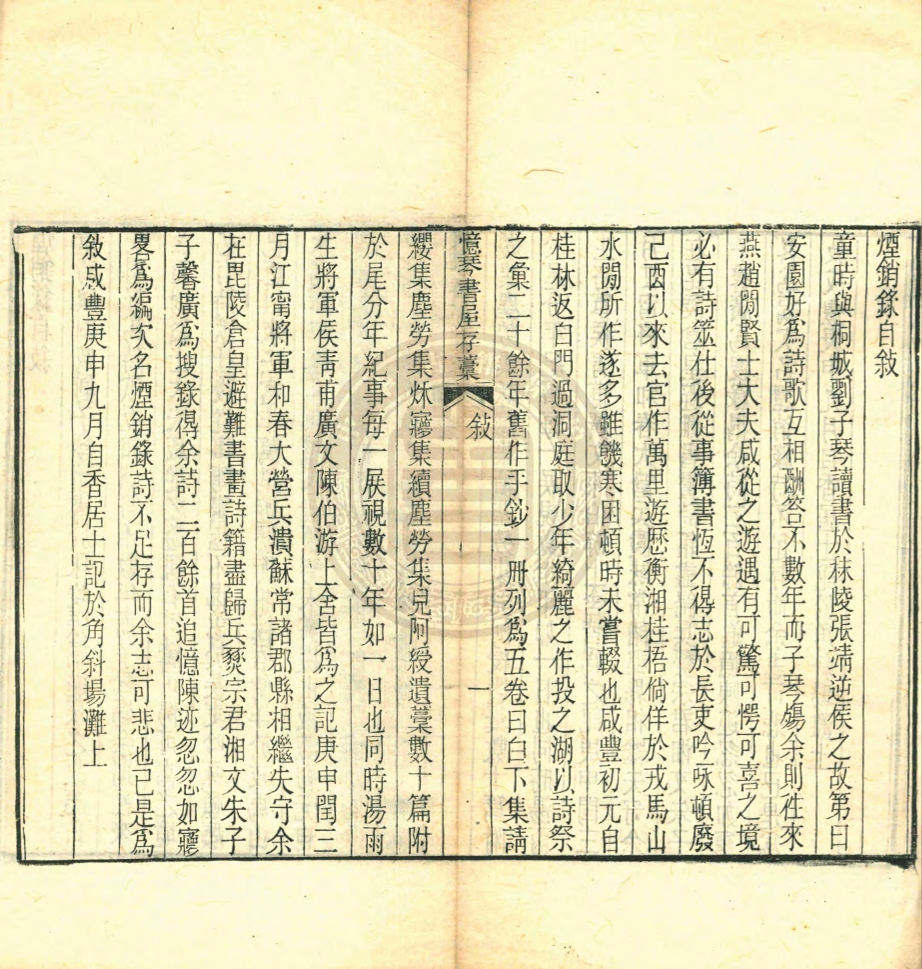 煙銷錄自敘
童時與桐城劉子琴讀書於秣陵張靖逆侯之故第曰
安園好爲詩歌互相酬答不數年而子琴殤余則往來
燕趙閒賢士大夫咸從之遊遇有可驚可愕可喜之境
必有詩筮仕後從事簿書恆不得志於長吏吟咏頓廢
己酉以來去官作萬里遊歷衡湘桂梧倘佯於戎馬山
水閒所作遂多雖饑寒困頓時未嘗輟也咸豐初元自
桂林返白門過洞庭取少年綺麗之作投之湖以詩祭
之彙二十餘年舊作手鈔一冊列爲五卷曰白下集請
憶琴書屋存藁 敘 一
纓集塵勞集炑寱集續塵勞集兒阿綬遺藁數十篇附
於尾分年紀事每一展視數十年如一日也同時湯雨
生將軍侯青甫廣文陳伯游上舍皆爲之記庚申閏三
月江甯將軍和春大營兵潰蘇常諸郡縣相繼失守余
在毘陵倉皇避難書畫詩籍盡歸兵燹宗君湘文朱子
子馨廣爲搜錄得余詩二百餘首追憶陳迹忽忽如寱
畧爲編次名煙銷錄詩不足存而余志可悲也已是爲
敘咸豐庚申九月自香居士記於角斜場灘上